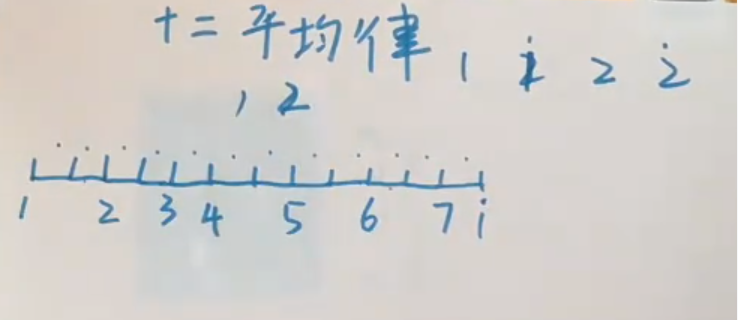 十二平均律 1 i 2 2̇
1 2
1 2 3 4 5 6 7 i